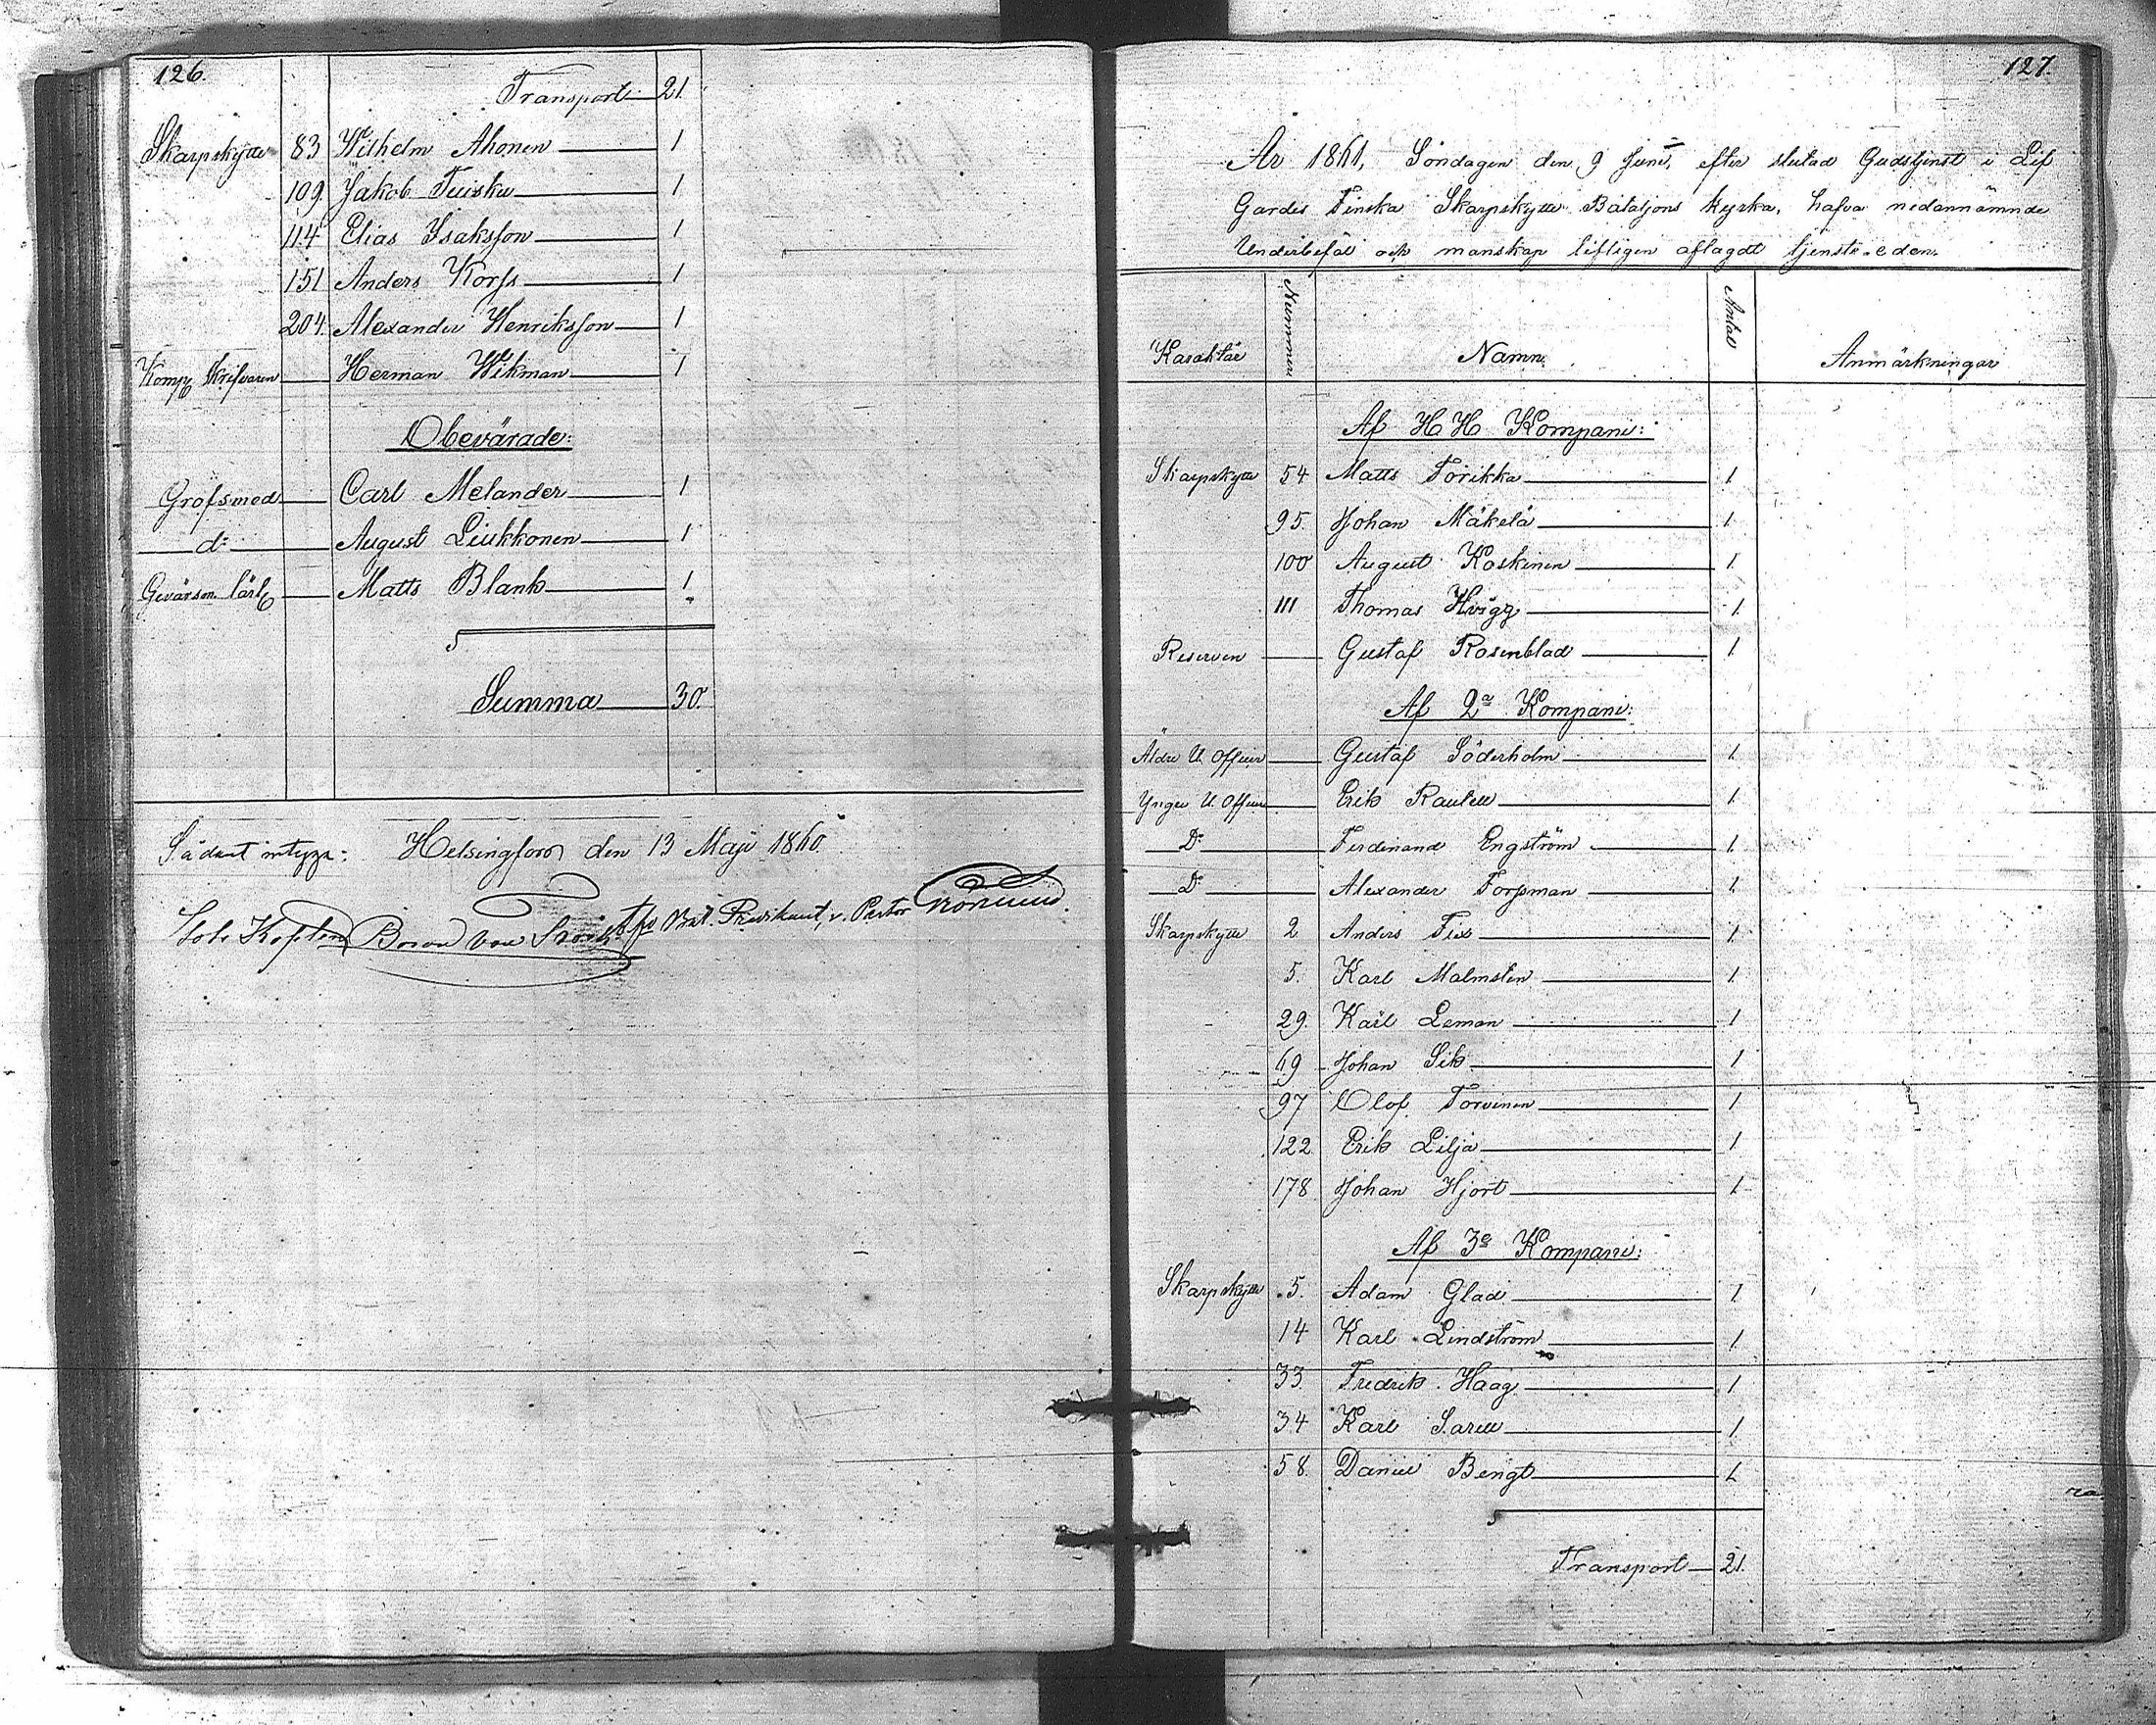 126.
Transport 21
Skarpskytte 83 Wilhelm Ahonen 1
109. Jakob Tuisku 1
114 Elias Isaksson 1
151 Anders Korss 1
204. Alexander Henriksson 1
Komp. Skrifvaren Herman Wikman 1
Obevärade:
Grofsmed Carl Melander 1
d:o August Liukkonen 1
Gevärsm. lärl. Matts Blank 1
Summa 30.
Sådant intyga: Helsingfors den 13 Maji 1860.
Baron von Bat. Predikant, v. Pastor
127.
År 1861, Söndagen den 9 Juni, efter slutad Gudstjenst i Lif
Gardes Finska Skarpskytte Bataljons kyrka, hafva nedannämnde
Underbefäl och manskap lifligen aflagdt tjenste-eden.
Karaktär Nummer Namn. Antal Anmärkningar
Af H H Kompani:
Skarpskytte 54 Matts Torikka 1
95. Johan Mäkelä 1.
100 August Koskinen 1
111 Thomas Hvigg 1
Reserven Gustaf Rosenblad 1
Af 2a Kompani:
Äldre U. Officer Gustaf Söderholm 1
Yngre U. Officer Erik Rautell 1
D:o Ferdinand Engström 1
D:o Alexander Forssman 1
Skarpskytte 2 Anders Fix 1
5. Karl Malmsten 1
29. Karl Leman 1
69 Johan Sik 1
97 Olof Torvinen 1
122 Erik Lilja 1
178 Johan Hjort 1
Af 3e Kompani:
Skarpskytte 5. Adam Glad 1
14 Karl Lindström 1
33 Fredrik Haag 1
34 Karl Sarell 1
58. Daniel Bengt 1
Transport 21.